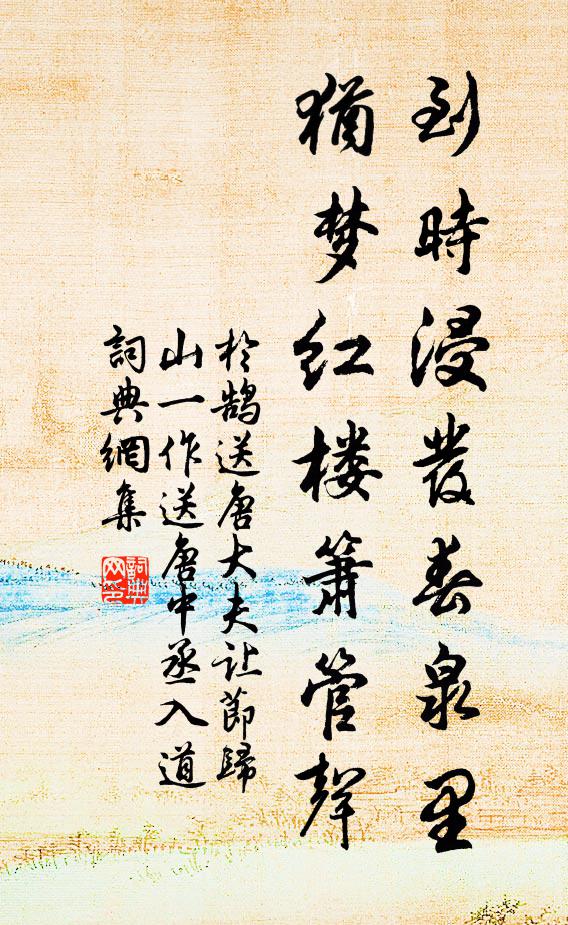 到時浸发春泉里
猶梦红楼箫管聲
於鹄送唐大夫让節歸
山一作送唐中丞入道
詞典網集
詞典
网